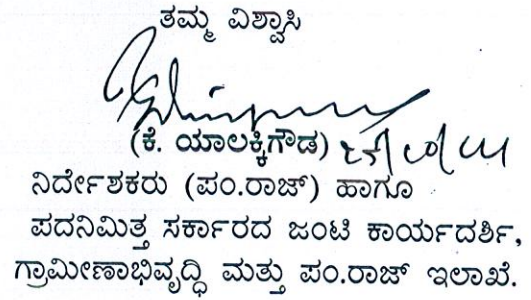 ತಮ್ಮ ವಿಶ್ವಾಸಿ
(ಕೆ. ಯಾಲಕ್ಕಿಗೌಡ)
ನಿರ್ದೇಶಕರು (ಪಂ.ರಾಜ್) ಹಾಗೂ
ಪದನಿಮಿತ್ತ ಸರ್ಕಾರದ ಜಂಟಿ ಕಾರ್ಯದರ್ಶಿ,
ಗ್ರಾಮೀಣಾಭಿವೃದ್ಧಿ ಮತ್ತು ಪಂ.ರಾಜ್ ಇಲಾಖೆ.